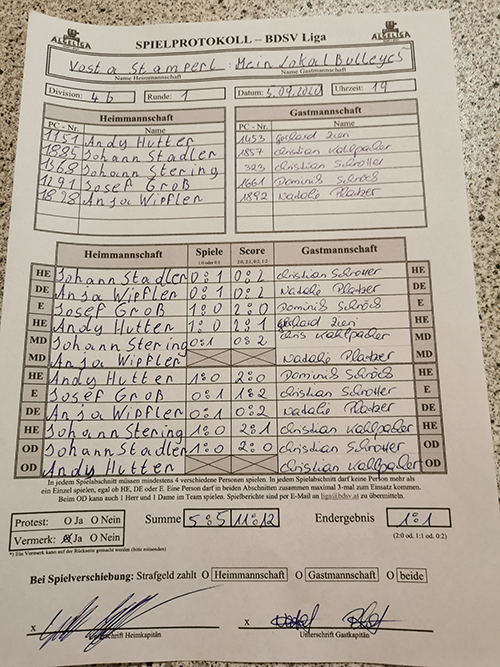 ALSELIGA
SPIELPROTOKOLL – BDSV Liga
ALSELIGA
Vost a Stamperl : Mein Lokal Bulleyes
Name Heimmannschaft Name Gastmannschaft
Division: 4b Runde: 1 Datum: 5.09.2020 Uhrzeit: 19
Heimmannschaft Gastmannschaft
PC - Nr. Name PC - Nr. Name
1151 Andy Hutter 1453 Gerhard Zieri
1885 Johann Stadler 1857 Christian Kahlpacher
1368 Johann Stering 323 Christian Schrotter
1291 Josef Groß 1661 Dominik Schröck
1828 Anja Wipfler 1892 Natalie Platzer
Heimmannschaft Spiele Score Gastmannschaft
1:0 oder 0:1 2:0, 2:1, 0:2, 1:2
HE Johann Stadler 0:1 0:2 Christian Schrotter HE
DE Anja Wipfler 0:1 0:2 Natalie Platzer DE
E Josef Groß 1:0 2:0 Dominik Schröck E
HE Andy Hutter 1:0 2:1 Gerhard Zieri HE
MD Johann Stering 0:1 0:2 Chris Kahlpacher MD
MD Anja Wipfler Natalie Platzer MD
HE Andy Hutter 1:0 2:0 Dominik Schröck HE
E Josef Groß 0:1 1:2 Christian Schrotter E
DE Anja Wipfler 0:1 0:2 Natalie Platzer DE
HE Johann Stering 1:0 2:1 Christian Kahlpacher HE
OD Johann Stadler 1:0 2:0 Christian Schrotter OD
OD Andy Hutter Christian Kahlpacher OD
In jedem Spielabschnitt müssen mindestens 4 verschiedene Personen spielen. In jedem Spielabschnitt darf keine Person mehr als
ein Einzel spielen, egal ob HE, DE oder E. Eine Person darf in beiden Abschnitten zusammen maximal 3-mal zum Einsatz kommen.
Beim OD kann auch 1 Herr und 1 Dame im Team spielen. Spielberichte sind per E-Mail an liga@bdsv.at zu übermitteln.
Protest: O Ja O Nein Summe 5:5 11:12 Endergebnis 1:1
Vermerk: O Ja O Nein (2:0 od. 1:1 od. 0:2)
*) Ein Vermerk kann auf der Rückseite gemacht werden (bitte ankreuzen)
Bei Spielverschiebung: Strafgeld zahlt O Heimmannschaft O Gastmannschaft O beide
X X
Unterschrift Heimkapitän Unterschrift Gastkapitän